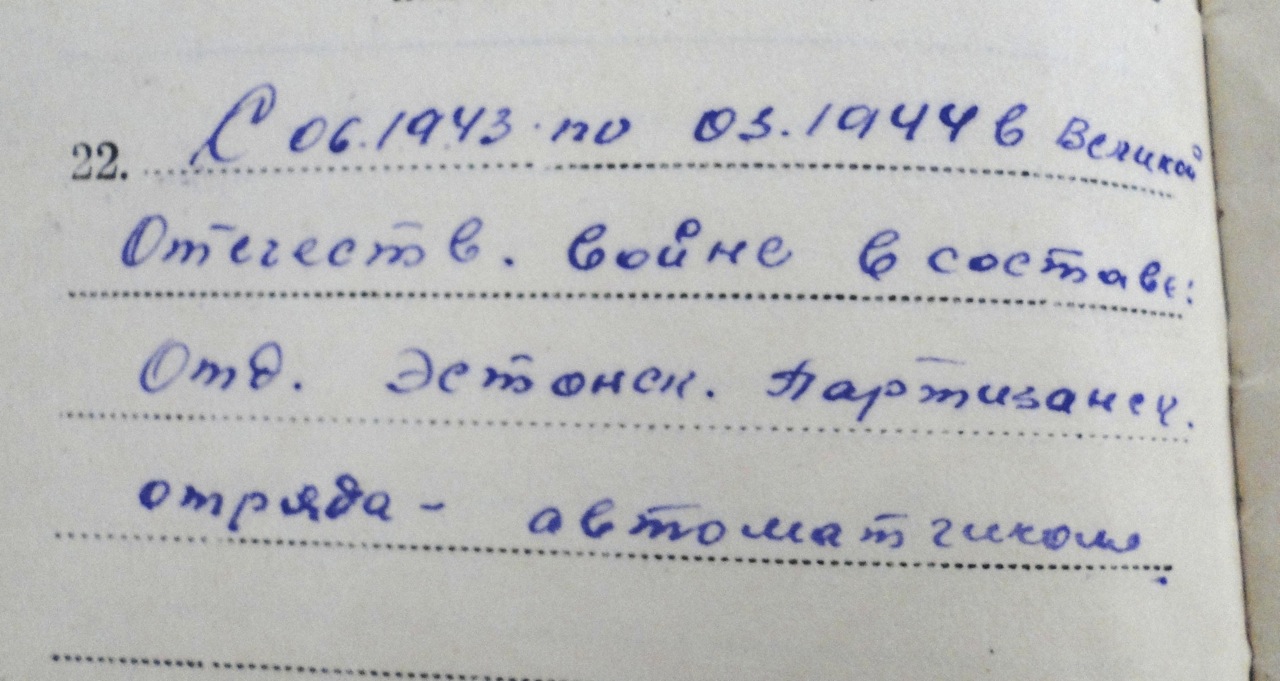 22. С 06.1943 по 03.1944 в Великой
Отечеств. войне в составе:
Отд. Эстонск. Партизанск.
отряда - автоматчиком.